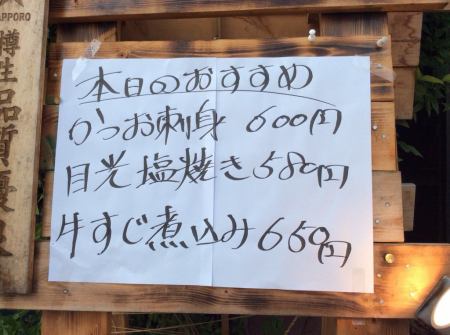 本日のおすすめ
かつお刺身 600円
目光塩焼き 580円
牛すじ煮込み 650円
SAPPORO
樽生品質優良